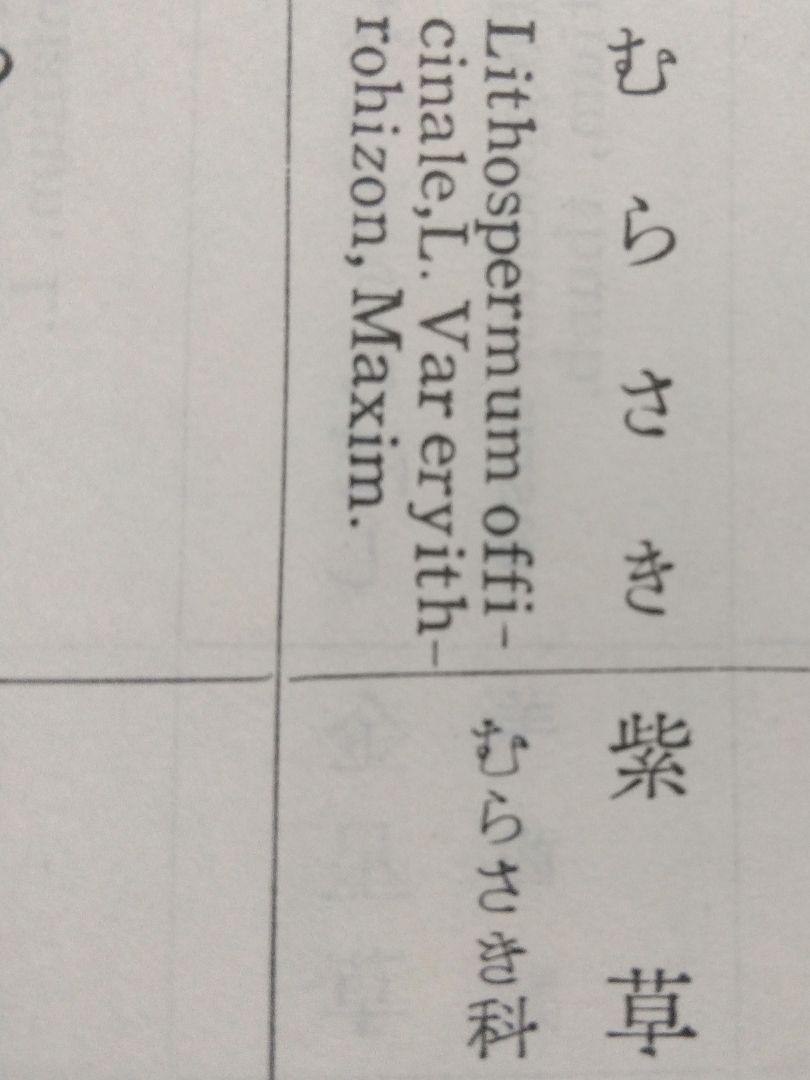 むらさき
Lithospermum offi-
cinale,L. Var eryith-
rohizon, Maxim.
紫草
むらさき科